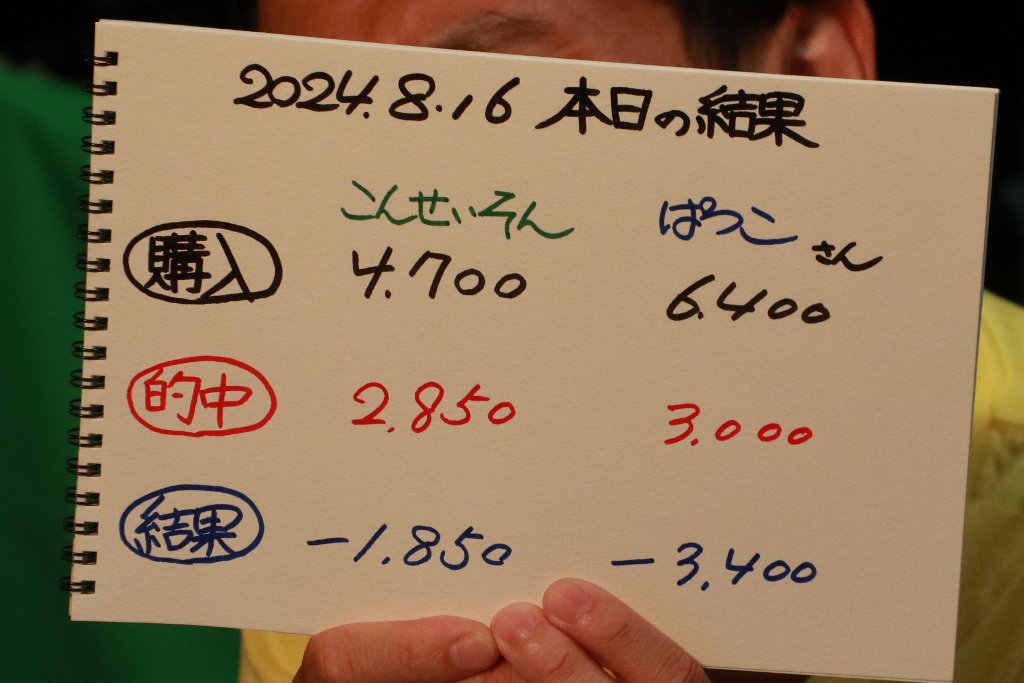 2024.8.16 本日の結果
こんせいそん ぱろこ さん
購入 4.700 6.400
的中 2.850 3.000
結果 -1.850 -3.400